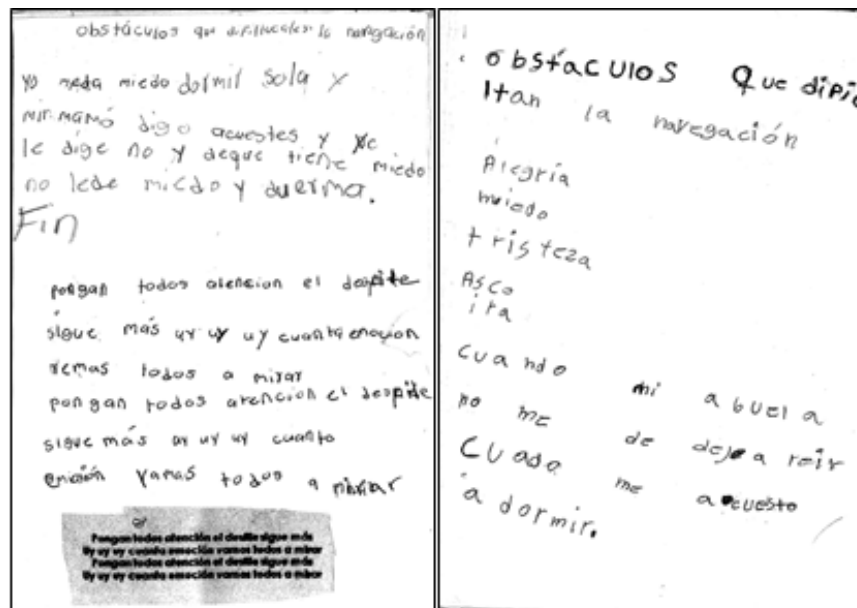 obstáculos que dificultales la navegación
yo meda miedo dormil sola y
mi mamá digo acuestes y ye
le dige no y deque tiene miedo
no lede miedo y duerma.
Fin
pongan todos atencion el despite
sigue más uy uy uy cuanta emocion
vemas todos a mirar
pongan todos atencion el despite
sigue más uy uy uy cuanto
emoción vamas todos a mirar
Pongan todos atención el desfile sigue más
Uy uy uy cuanta emoción vamos todos a mirar
Pongan todos atención el desfile sigue más
Uy uy uy cuanta emoción vamos todos a mirar
obstáculos que dipic
ltan la navegación
Alegría
miedo
tristeza
Asco
ira
cuando mi abuela
no me de deja reir
cuado me acuesto
a dormir.